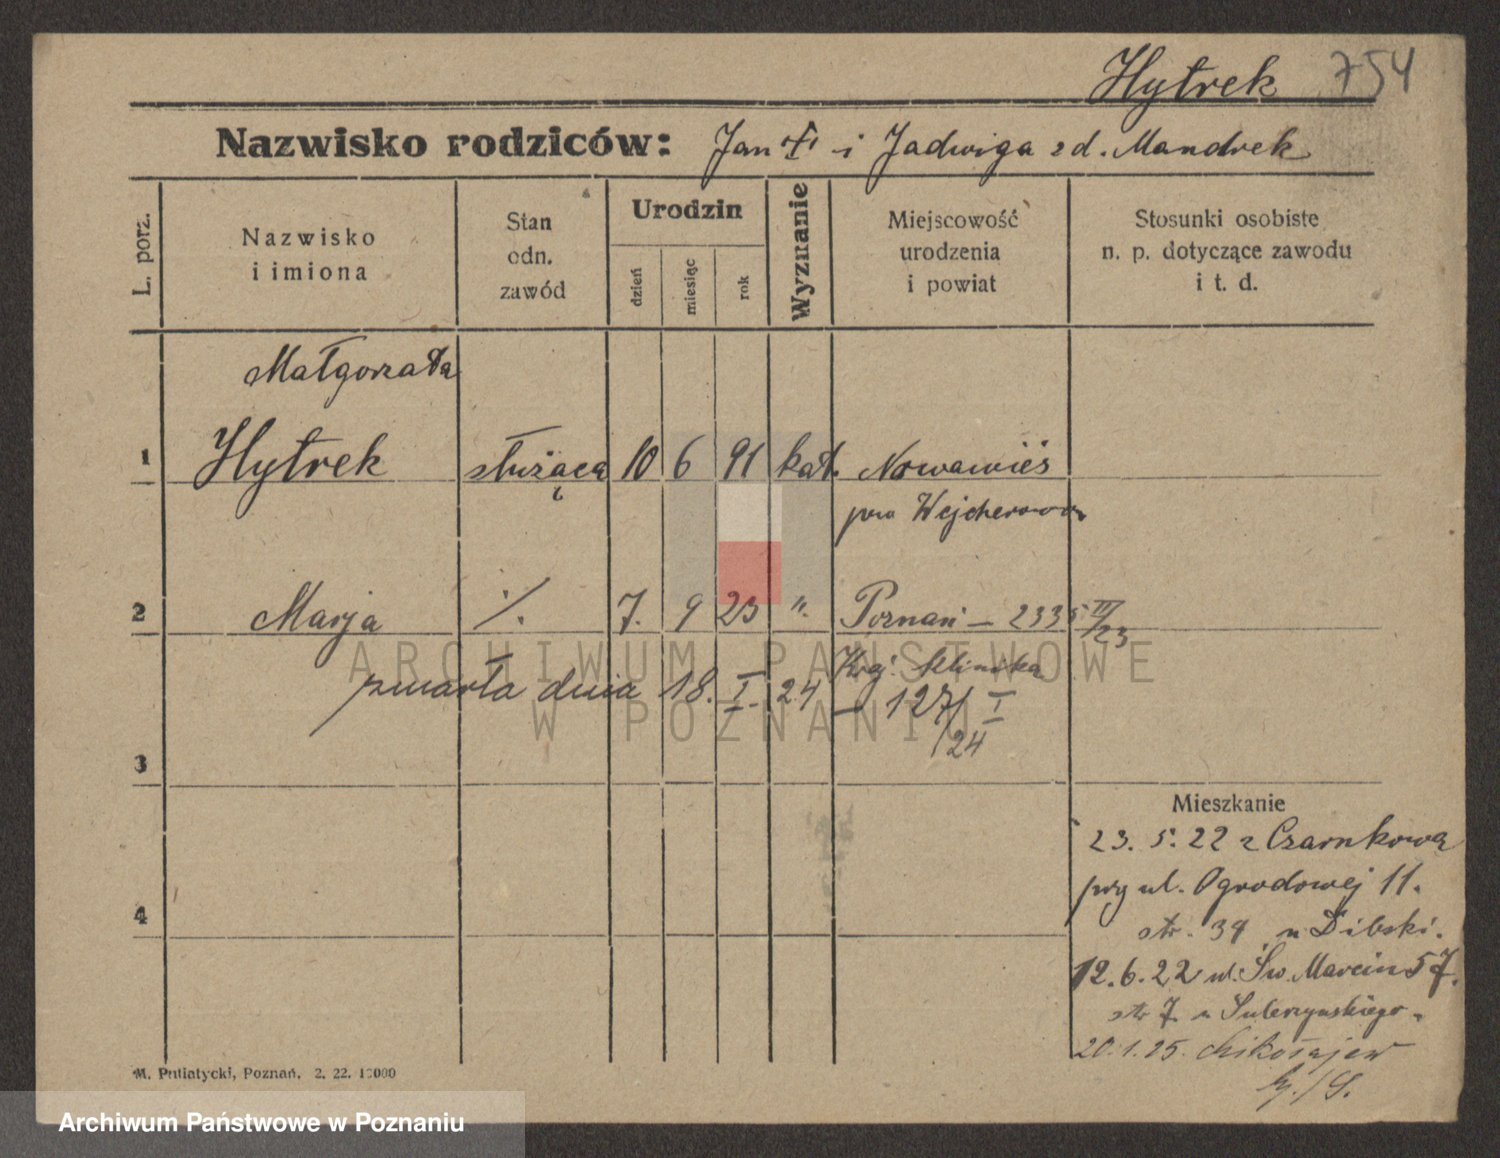 Hytrek 754
Nazwisko rodziców: Jan † i Jadwiga zd. Mandrek
L. porz.
Nazwisko
i imiona
Stan
odn.
zawód
Urodzin
dzień
miesiąc
rok
Wyznanie
Miejscowość
urodzenia
i powiat
Stosunki osobiste
n. p. dotyczące zawodu
i t. d.
Małgorzata
1 Hytrek służąca 10 6 91 kat. Nowawieś
pow Wejherowo
2 Marja ·/. 7. 9 23 ". Poznań - 2335 III/23
Kraj. klinika
zmarła dnia 18. I. 24 - 127/I
24
3
Mieszkanie
23. 5. 22 z Czarnkowa
przy ul. Ogrodowej 11.
str. 39 u Dibski.
4
12. 6. 22 ul. Św. Marcin 57.
str 7 u Sulerzyskiego.
20. 1. 25.
M. Putiatycki, Poznań. 2. 22. 10000
ARCHIWUM PAŃSTWOWE
W POZNANIU
Archiwum Państwowe w Poznaniu